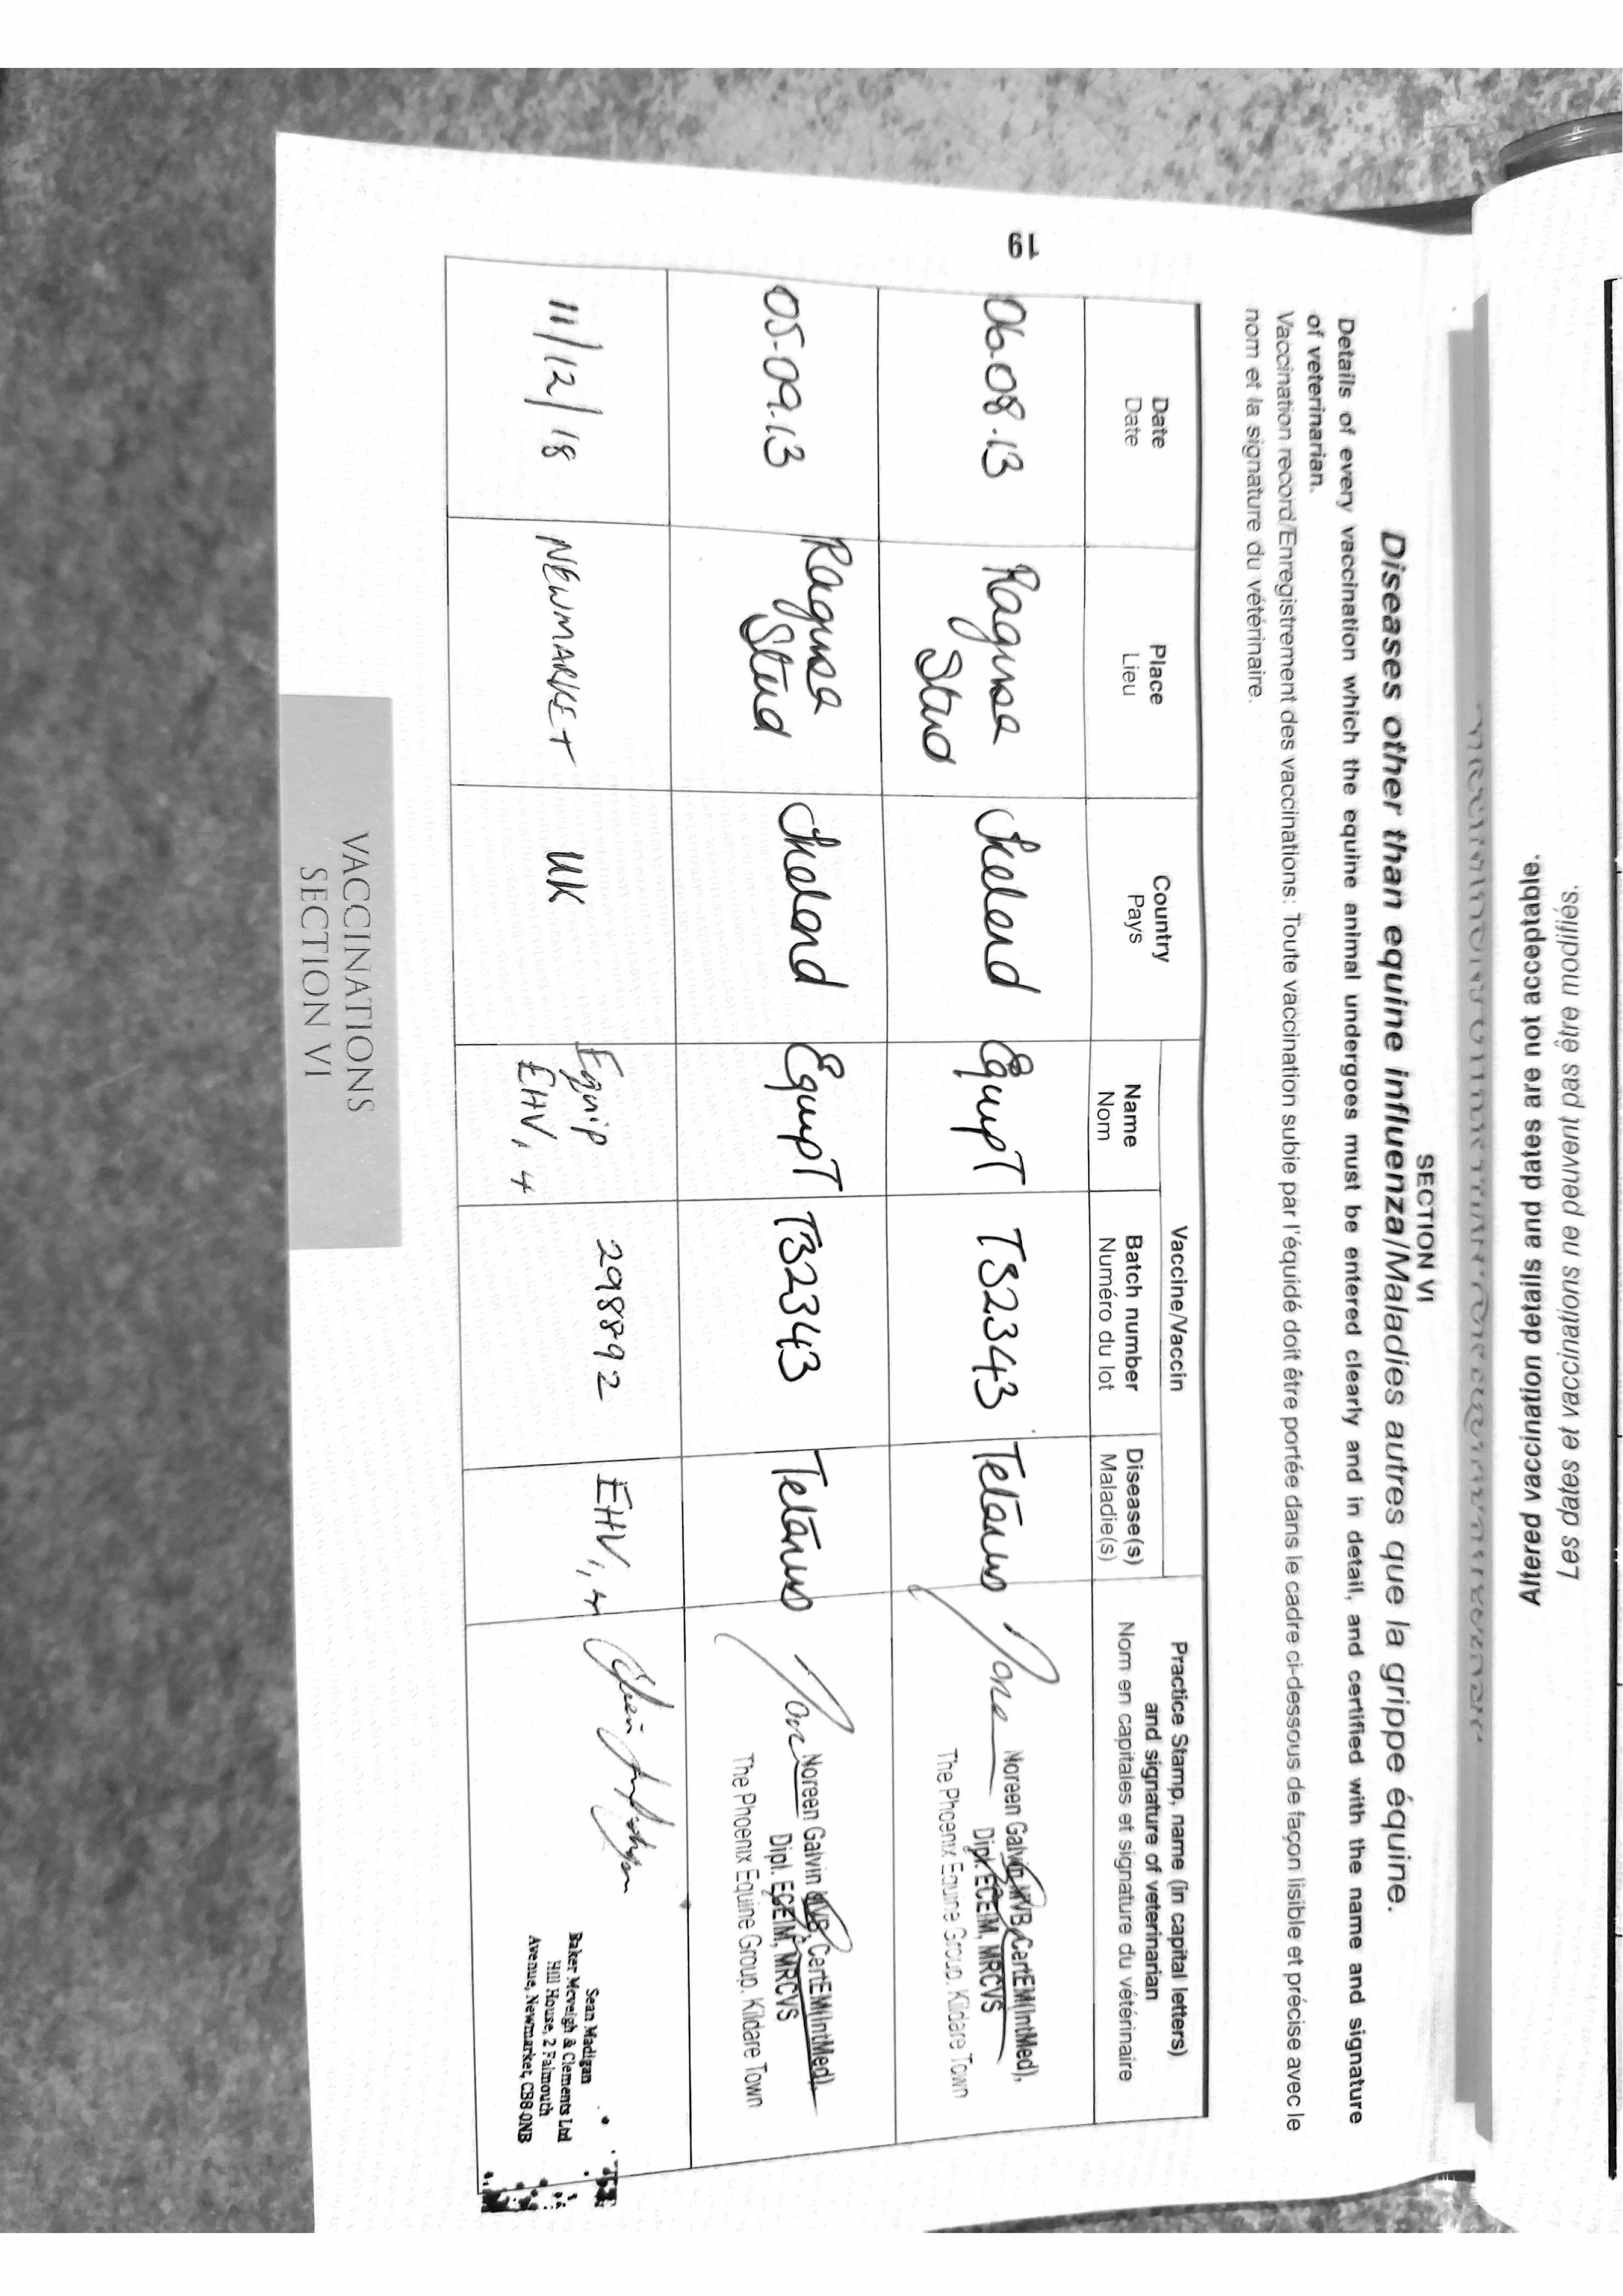 Les dates et vaccinations ne peuvent pas être modifiés.
Altered vaccination details and dates are not acceptable.
SECTION VI
Diseases other than equine influenza/Maladies autres que la grippe équine.
Details of every vaccination which the equine animal undergoes must be entered clearly and in detail, and certified with the name and signature
of veterinarian.
Vaccination record/Enregistrement des vaccinations: Toute vaccination subie par l'équidé doit être portée dans le cadre ci-dessous de façon lisible et précise avec le
nom et la signature du vétérinaire.
Date
Date
Place
Lieu
Country
Pays
Vaccine/Vaccin
Name
Nom
Batch number
Numéro du lot
Disease(s)
Maladie(s)
Practice Stamp, name (in capital letters)
and signature of veterinarian
Nom en capitales et signature du vétérinaire
06.08.13
Ragusa
Stud
Ireland
EquipT
T32343
Tetanus
Noreen Galvin MVB, CertEM(IntMed),
Dipl. ECEIM, MRCVS
The Phoenix Equine Group, Kildare Town
05.09.13
Ragusa
Stud
Ireland
EquipT
T32343
Tetanus
Noreen Galvin MVB, CertEM(IntMed),
Dipl. ECEIM, MRCVS
The Phoenix Equine Group, Kildare Town
11/12/18
NEWMARKET
UK
Equip
EHV1,4
298892
EHV1,4
Sean Madigan
Baker Mcveigh & Clements Ltd
Hill House, 2 Falmouth
Avenue, Newmarket, CB8 0NB
19
VACCINATIONS
SECTION VI